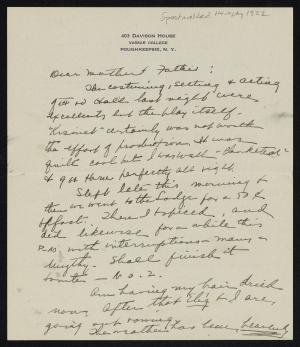 Postmarked 14 May 1922
403 Davison House
Vassar College
Poughkeepsie, N. Y.
Dear Mother & Father:
The costuming, setting & acting
of Hall last night were
excellent but the play itself -
"Kismet" - certainly was not worth
the effort of production. It was
quite cool but I was well - blanketed
& got Home perfectly all right.
Slept late this morning &
then we went to the Lodge for a
There I topiced, and
did likewise for a while this
P.M. with interruptions - many &
lengthy. Shall finish it
Am having my hair dried
now. After that & I are
going out rowing.
The weather has been heavenly